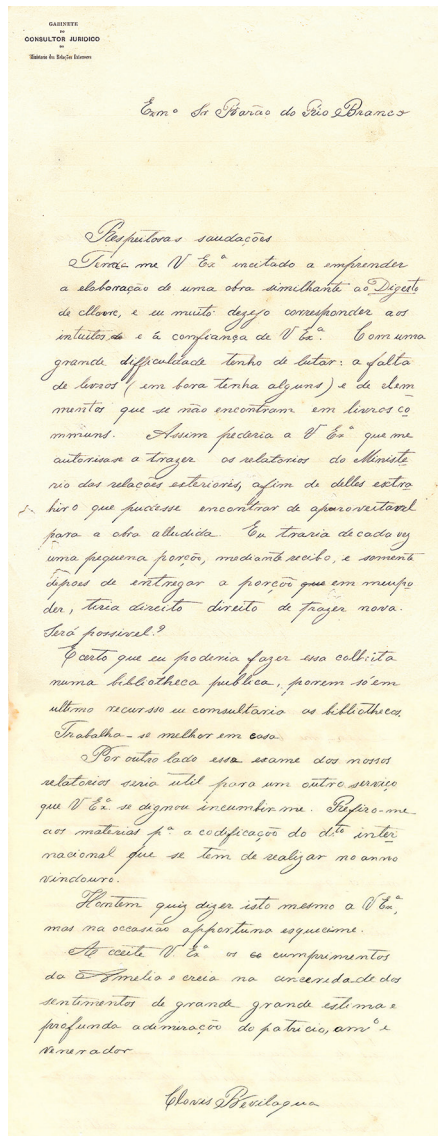 GABINETE
DO
CONSULTOR JURIDICO
DO
Ministerio das Relações Exteriores
Exmº Sr Barão do Rio Branco
Respeitosas saudações
Tem-me V Exª incitado a emprender
a elaboração de uma obra similhante ao Digesto
de Moore, e eu muito dezejo corresponder aos
intuitos e á confiança de V Exª. Com uma
grande difficuldade tenho de lutar: a falta
de livros (em bora tenha alguns) e de elem
mentos que se não encontram em livros co
mmuns. Assim pederia a V Exª que me
autorisase a trazer os relatorios do Ministe
rio das relações esteriores, afim de delles extra
hir o que pudesse encontrar de aparoveitavel
para a obra alludida Eu traria de cada vez
uma pequena porção, mediante recibo, e somente
depois de entregar a porção que em meu po
der, tiria direito direito de trazer nova.
Será possivel?
E certo que eu poderia fazer essa colheita
numa bibliotheca publica, porem só em
ultimo recursso eu comsultaria as bibliothecas.
Trabalha-se melhor em casa
Por outro lado essa esame dos nossos
relatorios seria util para um outro serviço
que V Exª se dignou incumbir me. Refiro-me
aos materias pª a codificação do dtº inter
nacional que se tem de realizar no anno
vindouro.
Hontem quiz dizer isto mesmo a V Exª,
mas na occasião apportuna esquecime.
Acceite V Exª os cumprimentos
da Amelia e creia na sinceridade dos
sentimentos de grande grande estima e
profunda adimiração do patricio, amº e
venerador
Clovis Bevilaqua